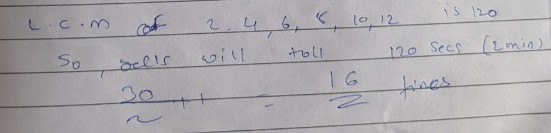 L.C.M of 2.4, 6, 8, 10, 12 is 120
So, bells will toll 120 secs (2min)
30/2 + 1 = 16 times